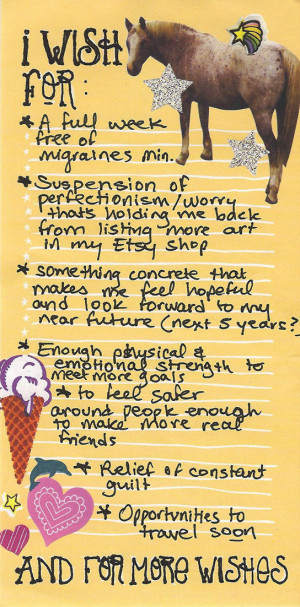 I WISH
FOR:
* A full week
free of
migraines min.
* Suspension of
perfectionism/worry
thats holding me back
from listing more art
in my Etsy shop
* something concrete that
makes me feel hopeful
and look forward to my
near future (next 5 years?)
* Enough physical &
emotional strength to
meet more goals
* to feel safer
around people enough
to make more real
friends
* Relief of constant
guilt
* Opportunities to
travel soon
AND FOR MORE WISHES